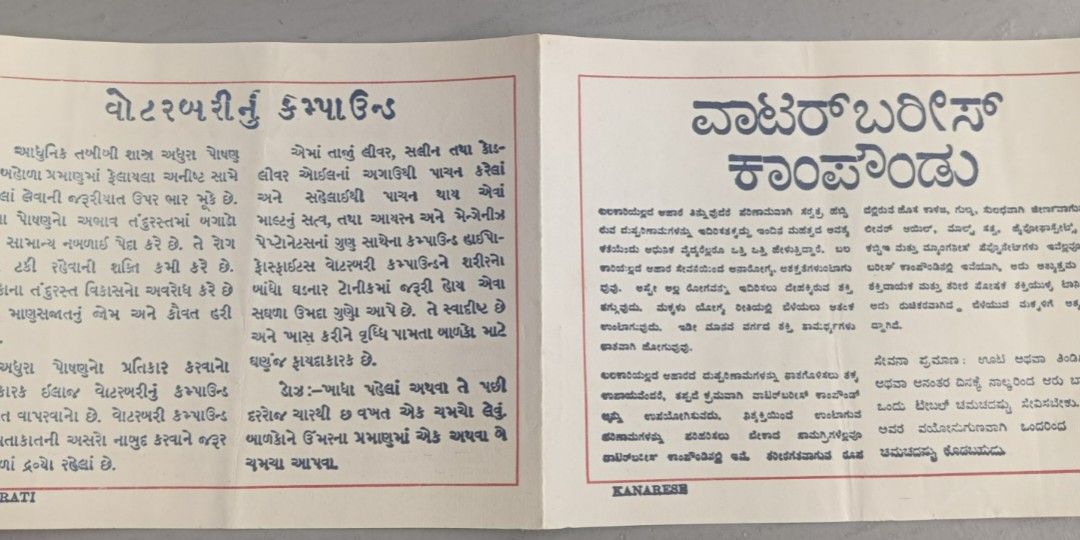 વોટરબરીનું કમ્પાઉન્ડ
આધુનિક તબીબી શાસ્ત્ર અધુરા પોષણ
બહોળા પ્રમાણમાં ફેલાયલા અનીષ્ટ સામે
લાં લેવાની જરૂરીયાત ઉપર ભાર મૂકે છે.
પોષણનો અભાવ તંદુરસ્તમાં બગાડો
સામાન્ય નબળાઈ પેદા કરે છે. તે રોગ
ટકી રહેવાની શક્તિ કમી કરે છે.
કોના તંદુરસ્ત વિકાસનો અવરોધ કરે છે
માણસજાતનું જોમ અને કૌવત હરી
અધુરા પોષણનો પ્રતિકાર કરવાનો
કારક ઈલાજ વોટરબરીનું કમ્પાઉન્ડ
ત વાપરવાનો છે. વોટરબરી કમ્પાઉન્ડ
તાકાતની અસરો નાબુદ કરવાને જરૂર
ળાં દ્રવ્યો રહેલાં છે.
એમાં તાજું લીવર, સલીન તથા કોડ-
લીવર ઓઈલનાં અગાઉથી પાચન કરેલાં
અને સહેલાઈથી પાચન થાય એવાં
માલ્ટનું સત્વ, તથા આયરન અને મેન્ગેનીઝ
પેપ્ટોનેટસનાં ગુણ સાથેના કમ્પાઉન્ડ હાઈપો-
ફોસ્ફાઈટસ વોટરબરી કમ્પાઉન્ડને શરીરનો
બાંધો ઘડનાર ટોનીકમાં જરૂરી હોય એવા
સઘળા ઉમદા ગુણો આપે છે. તે સ્વાદીષ્ટ છે
અને ખાસ કરીને વૃધ્ધિ પામતા બાળકો માટે
ઘણુંજ ફાયદાકારક છે.
ડોઝ :—ખાધા પહેલાં અથવા તે પછી
દરરોજ ચારથી છ વખત એક ચમચો લેવું.
બાળકોને ઉંમરના પ્રમાણમાં એક અથવા બે
ચમચા આપવા.
RATI
ವಾಟರ್‌ಬರೀಸ್
ಕಾಂಪೌಂಡು
ಬಲಕಾರಿಯಲ್ಲದ ಆಹಾರ ತಿನ್ನುವುದರ ಪರಿಣಾಮವಾಗಿ ಸರ್ವತ್ರ ಹಬ್ಬಿ
ರುವ ದುಷ್ಪರಿಣಾಮಗಳನ್ನು ಇದಿರಿಸತಕ್ಕದ್ದು ಇಂದಿನ ಮಹತ್ವದ ಅವಶ್ಯ
ಕತೆಯೆಂದು ಆಧುನಿಕ ವೈದ್ಯರೆಲ್ಲರೂ ಒತ್ತಿ ಒತ್ತಿ ಹೇಳುತ್ತಿದ್ದಾರೆ. ಬಲ
ಕಾರಿಯಲ್ಲದ ಆಹಾರ ಸೇವನೆಯಿಂದ ಅನಾರೋಗ್ಯ, ಅಶಕ್ತತೆಗಳುಂಟಾಗು
ವುವು. ಅಷ್ಟೇ ಅಲ್ಲ ರೋಗವನ್ನು ಇದಿರಿಸಲು ದೇಹಕ್ಕಿರುವ ಶಕ್ತಿ
ತಗ್ಗುವುದು. ಮಕ್ಕಳು ಯೋಗ್ಯ ರೀತಿಯಲ್ಲಿ ಬೆಳೆಯಲು ಆತಂಕ
ಉಂಟಾಗುವುದು. ಇಡೀ ಮಾನವ ವರ್ಗದ ಶಕ್ತಿ ಸಾಮರ್ಥ್ಯಗಳು
ನಾಶವಾಗಿ ಹೋಗುವುವು.
ಬಲಕಾರಿಯಲ್ಲದ ಆಹಾರದ ದುಷ್ಪರಿಣಾಮಗಳನ್ನು ನಾಶಗೊಳಿಸಲು ತಕ್ಕ
ಉಪಾಯವೆಂದರೆ, ತಪ್ಪದೆ ಕ್ರಮವಾಗಿ ವಾಟರ್‌ಬರೀಸ್ ಕಾಂಪೌಂಡ್
ಅನ್ನು ಉಪಯೋಗಿಸುವದು. ನಿಶ್ಶಕ್ತಿಯಿಂದ ಉಂಟಾಗುವ
ಪರಿಣಾಮಗಳನ್ನು ಪರಿಹರಿಸಲು ಬೇಕಾದ ಸಾಮಗ್ರಿಗಳೆಲ್ಲವೂ
ವಾಟರ್‌ಬರೀಸ್ ಕಾಂಪೌಂಡಿನಲ್ಲಿ ಇವೆ. ಶರೀರಗತವಾಗುವ ರೂಪ
ದಲ್ಲಿರುವ ಹೊಸ ಕಾಳಜ, ಗುಲ್ಮ, ಸುಲಭವಾಗಿ ಜೀರ್ಣವಾಗುವ
ಲೀವರ್ ಆಯಿಲ್, ಮಾಲ್ಟ್ ಸತ್ವ, ಹೈಪೋಫಾಸ್ಫೇಟ್ಸ್,
ಕಬ್ಬಿಣ ಮತ್ತು ಮ್ಯಾಂಗನೀಸ್ ಪೆಪ್ಟೊನೇಟ್‌ಗಳು ಇವೆಲ್ಲವೂ
ಬರೀಸ್ ಕಾಂಪೌಂಡಿನಲ್ಲಿ ಇವೆಯಾಗಿ, ಅದು ಅತ್ಯುತ್ತಮ
ಶಕ್ತಿದಾಯಕ ಮತ್ತು ಶರೀರ ಪೋಷಕ ಶಕ್ತಿಯುಳ್ಳ ಟಾನಿ
ಅದು ರುಚಿಕರವಾಗಿದ್ದು ಬೆಳೆಯುವ ಮಕ್ಕಳಿಗೆ ಅತ್ಯ
ದ್ದಾಗಿದೆ.
ಸೇವನಾ ಪ್ರಮಾಣ: ಊಟ ಅಥವಾ ತಿಂಡಿ
ಅಥವಾ ಅನಂತರ ದಿನಕ್ಕೆ ನಾಲ್ಕರಿಂದ ಆರು ಬಾ
ಒಂದು ಟೇಬಲ್ ಚಮಚದಷ್ಟು ಸೇವಿಸಬೇಕು.
ಅವರ ವಯೋನುಗುಣವಾಗಿ ಒಂದರಿಂದ
ಚಮಚದಷ್ಟು ಕೊಡಬಹುದು.
KANARESE